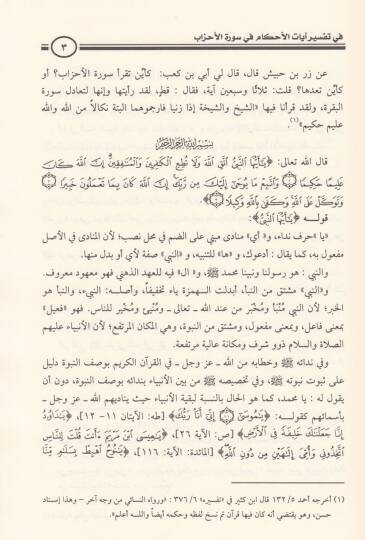 في تفسير آيات الأحكام في سورة الأحزاب
٣
عن زر بن حبيش قال، قال لي أبي بن كعب: كأيّن تقرأ سورة الأحزاب؟ أو
كأيّن تعدها؟ قلت: ثلاثًا وسبعين آية، فقال: قط، لقد رأيتها وإنها لتعادل سورة
البقرة، ولقد قرأنا فيها «الشيخ والشيخة إذا زنيا فارجموهما البتة نكالاً من الله والله
عليم حكيم»(١).
بسم الله الرحمن الرحيم
قال الله تعالى: ﴿يَٰٓأَيُّهَا ٱلنَّبِيُّ ٱتَّقِ ٱللَّهَ وَلَا تُطِعِ ٱلۡكَٰفِرِينَ وَٱلۡمُنَٰفِقِينَۚ إِنَّ ٱللَّهَ كَانَ
عَلِيمًا حَكِيمٗا ۝١ وَٱتَّبِعۡ مَا يُوحَىٰٓ إِلَيۡكَ مِن رَّبِّكَۚ إِنَّ ٱللَّهَ كَانَ بِمَا تَعۡمَلُونَ خَبِيرٗا ۝٢
وَتَوَكَّلۡ عَلَى ٱللَّهِۚ وَكَفَىٰ بِٱللَّهِ وَكِيلٗا ۝٣﴾.
قوله ﴿يَٰٓأَيُّهَا ٱلنَّبِيُّ﴾:
«يا» حرف نداء، و«أي» منادى مبني على الضم في محل نصب؛ لأن المنادى في الأصل
مفعول به، كما يقال: أدعوك، و«ها» للتنبيه، و«النبي» صفة لأي أو بدل منها.
والنبي: هو رسولنا ونبينا محمد ﷺ، و«ال» فيه للعهد الذهني فهو معهود معروف.
و«النبي» مشتق من النبأ، أبدلت الهمزة ياء تخفيفاً، وأصله: النبيء، والنبأ هو
الخبر؛ لأن النبي مُنَبَّأ ومُخْبَر من عند الله ـ تعالى ـ ومُنبِّئ ومُخْبِر للناس. فهو «فعيل»
بمعنى فاعل، وبمعنى مفعول، ومشتق من النبوة، وهي المكان المرتفع؛ لأن الأنبياء عليهم
الصلاة والسلام ذوو شرف ومكانة عالية مرتفعة.
وفي ندائه ﷺ وخطابه من الله ـ عز وجل ـ في القرآن الكريم بوصف النبوة دليل
على ثبوت نبوته ﷺ، وفي تخصيصه ﷺ من بين الأنبياء بندائه بوصف النبوة، دون أن
يقول له: يا محمد، كما هو الحال بالنسبة لبقية الأنبياء حيث يناديهم الله ـ عز وجل ـ
بأسمائهم كقوله: ﴿يَٰمُوسَىٰٓ ۝١١ إِنِّيٓ أَنَا۠ رَبُّكَ﴾ [طه: الآيتان ١١- ١٢]، ﴿يَٰدَاوُۥدُ
إِنَّا جَعَلۡنَٰكَ خَلِيفَةٗ فِي ٱلۡأَرۡضِ﴾ [ص: الآية ٢٦]، ﴿يَٰعِيسَى ٱبۡنَ مَرۡيَمَ ءَأَنتَ قُلۡتَ لِلنَّاسِ
ٱتَّخِذُونِي وَأُمِّيَ إِلَٰهَيۡنِ مِن دُونِ ٱللَّهِ﴾ [المائدة: الآية ١١٦]، ﴿يَٰنُوحُ ٱهۡبِطۡ بِسَلَٰمٖ مِّنَّا
(١) أخرجه أحمد ٥/ ١٣٢ قال ابن كثير في «تفسيره» ٦/ ٣٧٦: «ورواه النسائي من وجه آخر ـ وهذا إسناد
حسن، وهو يقتضي أنه كان فيها قرآن ثم نسخ لفظه وحكمه أيضاً والله أعلم».